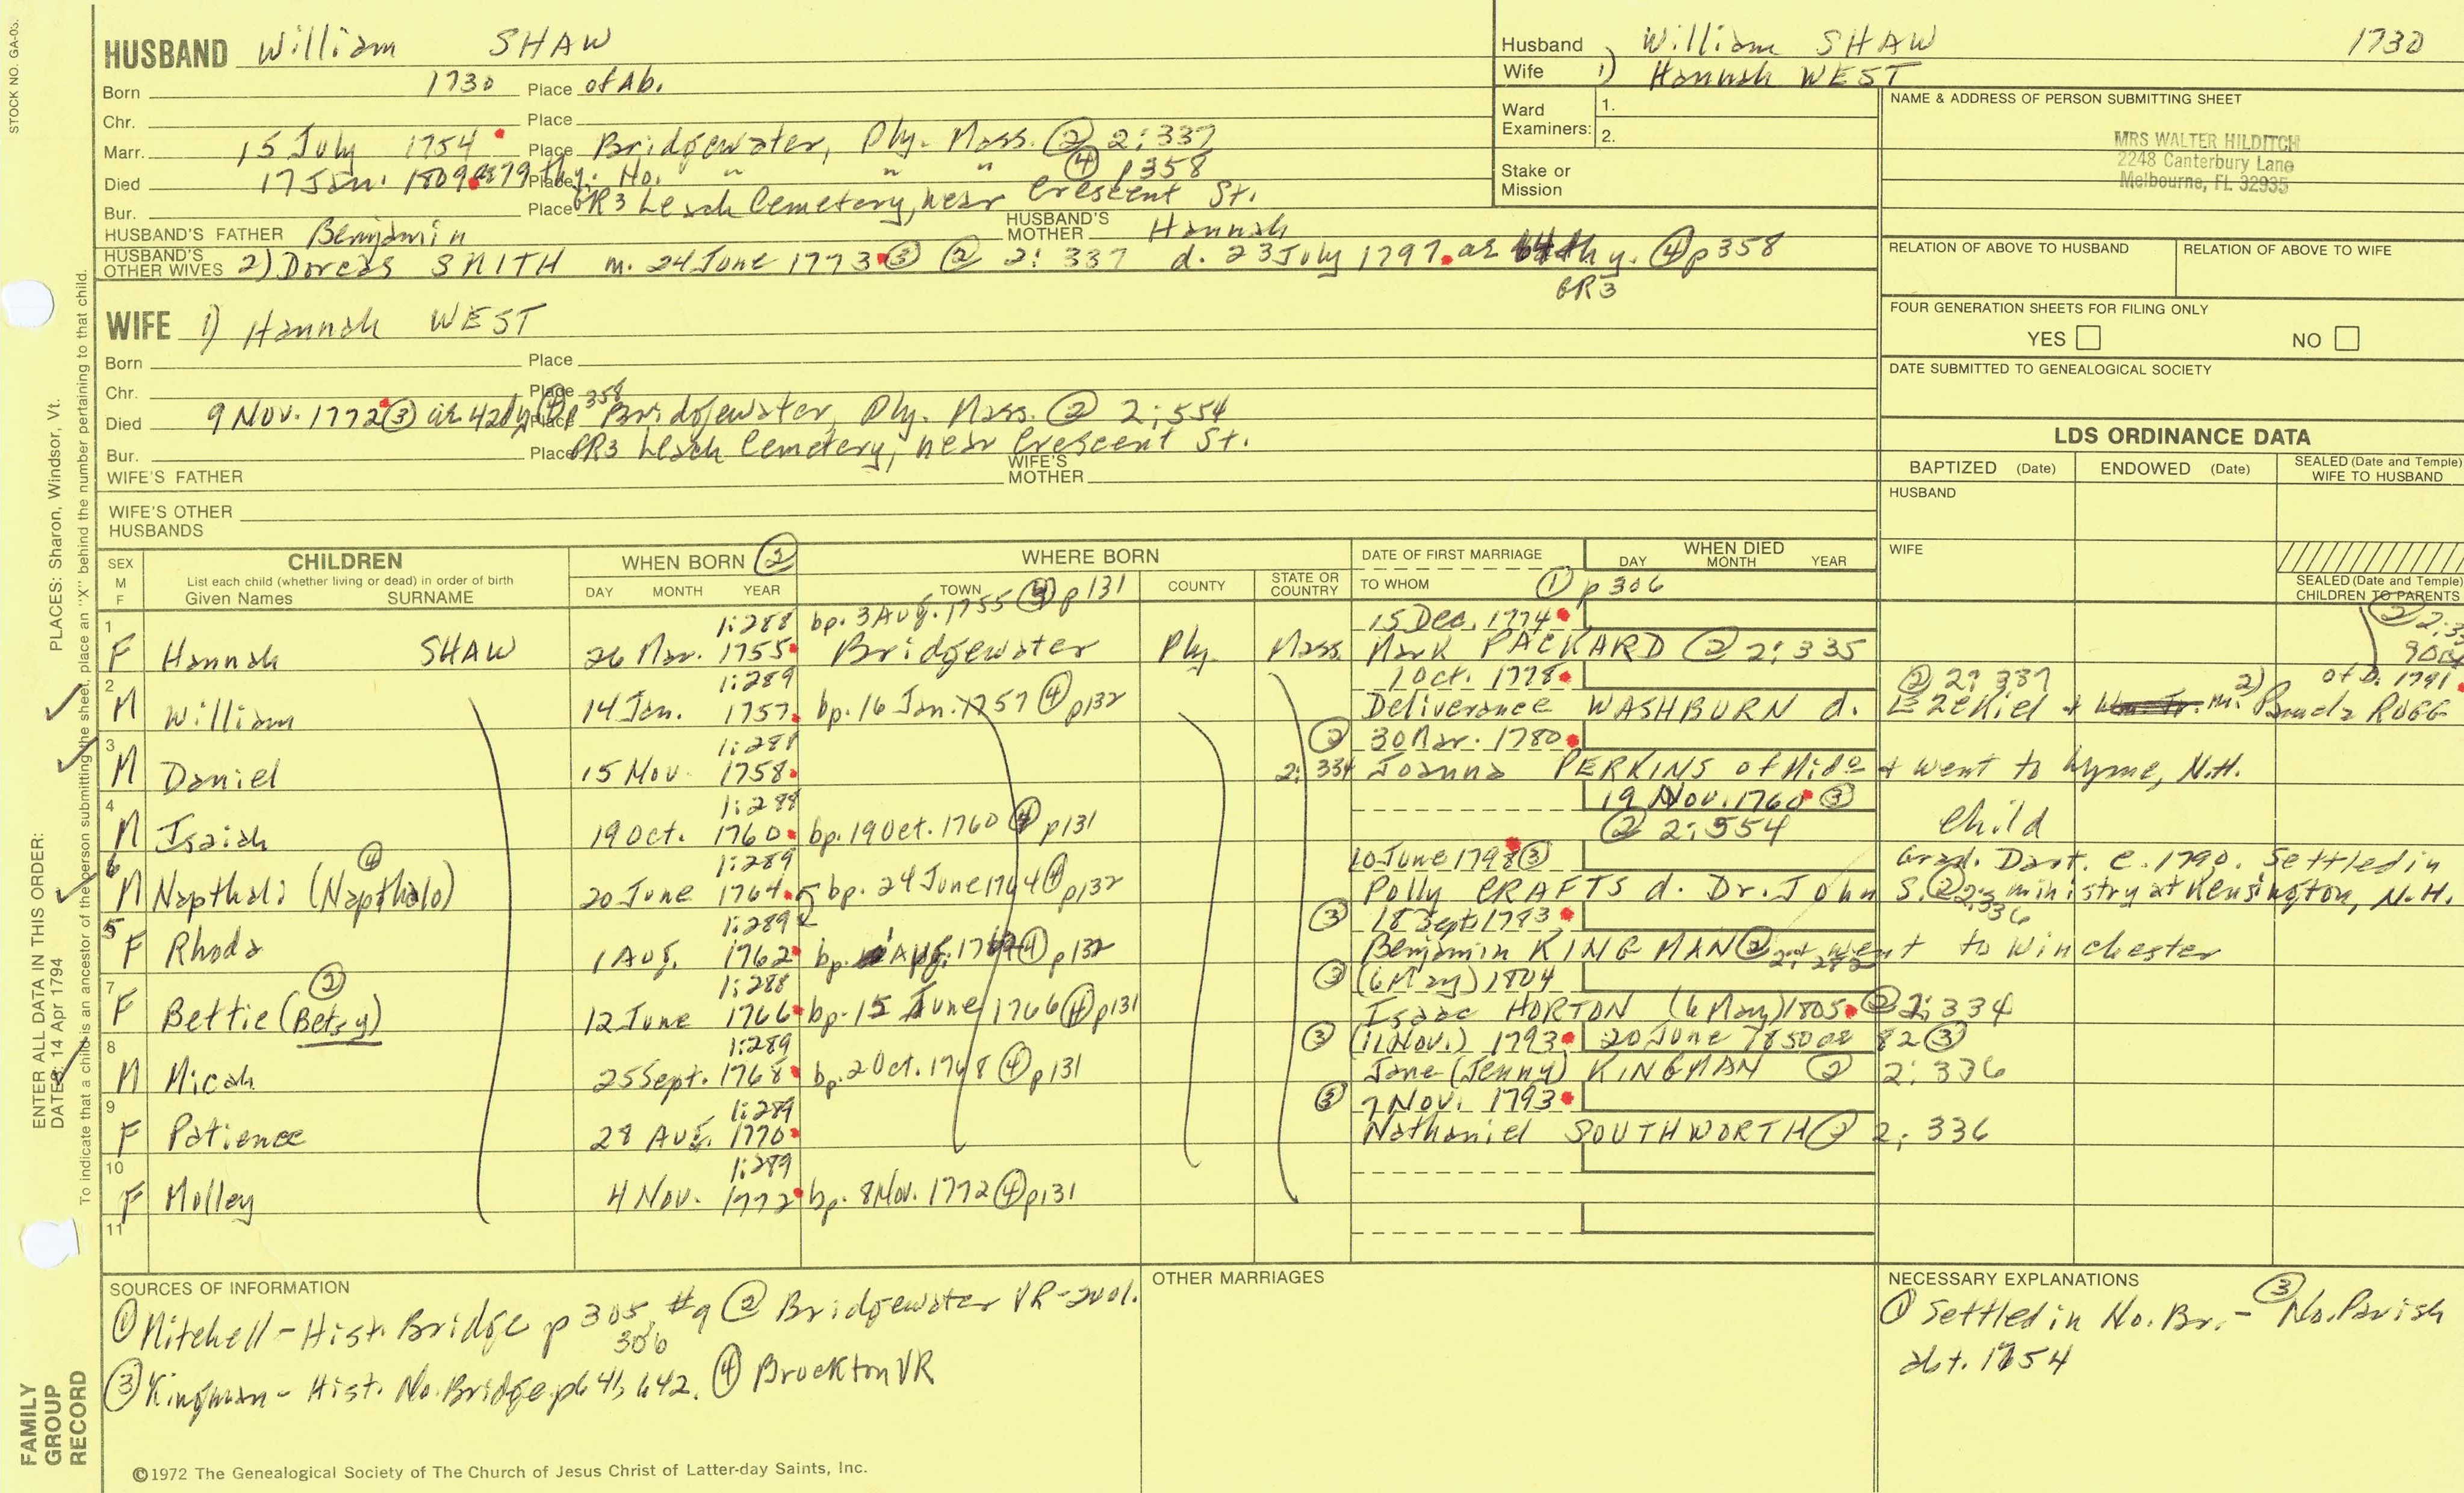 STOCK NO. GA-03.
HUSBAND William SHAW
Born 1730 Place of Ab.
Chr. Place
Marr. 15 July 1754 Place Bridgewater, Ply. Mass. ② 2:337
Died 17 Jan. 1809 ae 79th y. Place No. " " " ④ p358
Bur. Place GR3 Leach Cemetery, near Crescent St.
HUSBAND'S FATHER Benjamin HUSBAND'S MOTHER Hannah
HUSBAND'S OTHER WIVES 2) Dorcas SMITH m. 24 June 1773 ③ ② 2:337 d. 23 July 1797 ae 64th y. ④ p358
GR3
Husband 1) William SHAW 1730
Wife 1) Hannah WEST
Ward Examiners: 1.
2.
Stake or Mission
NAME & ADDRESS OF PERSON SUBMITTING SHEET
MRS WALTER HILDITCH
2248 Canterbury Lane
Melbourne, FL 32935
RELATION OF ABOVE TO HUSBAND RELATION OF ABOVE TO WIFE
FOUR GENERATION SHEETS FOR FILING ONLY
YES NO
DATE SUBMITTED TO GENEALOGICAL SOCIETY
WIFE 1) Hannah WEST
Born Place
Chr. Place
Died 9 Nov. 1772 ③ ae 42d y ④ p 358 Place Bridgewater, Ply. Mass. ② 2:554
Bur. Place GR3 Leach Cemetery, near Crescent St.
WIFE'S FATHER WIFE'S MOTHER
WIFE'S OTHER HUSBANDS
LDS ORDINANCE DATA
BAPTIZED (Date) ENDOWED (Date) SEALED (Date and Temple) WIFE TO HUSBAND
HUSBAND
WIFE
SEALED (Date and Temple) CHILDREN TO PARENTS
SEX M F CHILDREN
List each child (whether living or dead) in order of birth
Given Names SURNAME
WHEN BORN ②
DAY MONTH YEAR
WHERE BORN
TOWN COUNTY STATE OR COUNTRY
DATE OF FIRST MARRIAGE
TO WHOM ① p306
WHEN DIED
DAY MONTH YEAR
1:288 bp. 3 Aug. 1755 ④ p131 15 Dec. 1774
1 F Hannah SHAW 26 Mar. 1755 Bridgewater Ply. Mass. Mark PACKARD ② 2:335
1:289 1 Oct. 1778 ② 2:337 of D. 1791
2 M William 14 Jan. 1757 bp. 16 Jan. 1757 ④ p132 Deliverance WASHBURN d. Ezekiel + m. 2)
1:288 ② 30 Mar. 1780
3 M Daniel 15 Nov. 1758 2:334 Joanna PERKINS of Mido + went to Lyme, N.H.
1:288 19 Nov. 1760 ③
4 M Isaiah 19 Oct. 1760 bp. 19 Oct. 1760 ④ p131 ② 2:554 child
④ 1:289 10 June 1798 ③ Grad. Dart. C. 1790. Settled in
6 M Napthali (Napthalo) 20 June 1764 bp. 24 June 1764 ④ p132 Polly CRAFTS d. Dr. John S. ② 2:336 ministry at Kensington, N.H.
1:289 ③ 18 Sept. 1783
5 F Rhoda 1 Aug. 1762 bp. Aug. ④ p132 Benjamin KINGMAN ② went to Winchester
② 1:288 ③ (6 May) 1804
7 F Bettie (Betsy) 12 June 1766 bp. 15 June 1766 ④ p131 Isaac HORTON (6 May) 1805 ② 2:334
1:289 ③ (11 Nov.) 1793 20 June 1850 ae 82 ③
8 M Micah 25 Sept. 1768 bp. 2 Oct. 1768 ④ p131 Jane (Jenny) KINGMAN ② 2:336
1:289 ③ 7 Nov. 1793
9 F Patience 28 Aug. 1770 Nathaniel SOUTHWORTH ② 2:336
1:289
10 F Molley 4 Nov. 1772 bp. 8 Nov. 1772 ④ p131
11
SOURCES OF INFORMATION
① Mitchell - Hist. Bridge p 305, #9 ② Bridgewater VR-2vol.
306
③ Kingman - Hist. No. Bridge p641, 642. ④ Brockton VR
OTHER MARRIAGES
NECESSARY EXPLANATIONS
① Settled in No. Br. - ③ No. Parish
abt. 1754
©1972 The Genealogical Society of The Church of Jesus Christ of Latter-day Saints, Inc.
ENTER ALL DATA IN THIS ORDER: PLACES: Sharon, Windsor, Vt.
DATES: 14 Apr 1794
To indicate that a child is an ancestor of the person submitting the sheet, place an "X" behind the number pertaining to that child.
FAMILY
GROUP
RECORD